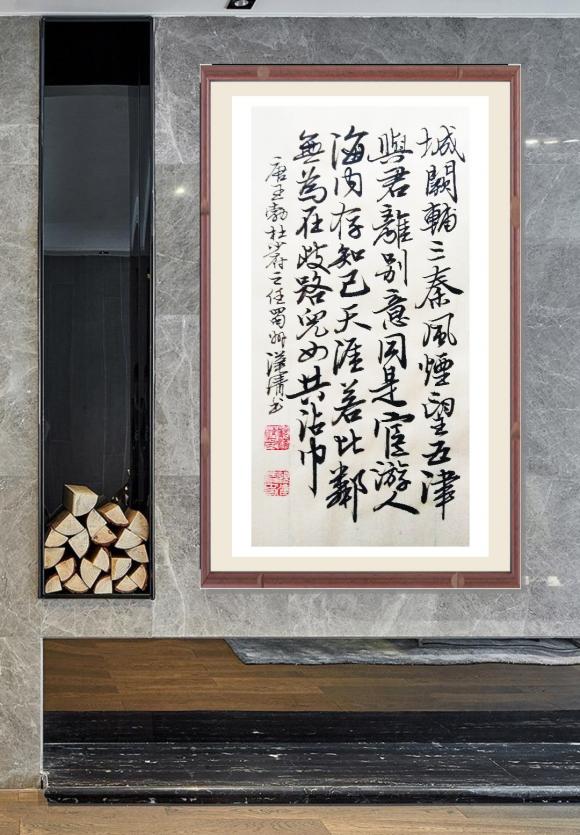 城闕輔三秦風煙望五津
與君離別意同是宦游人
海内存知己天涯若比鄰
無為在歧路兒女共沾巾
唐王勃杜少府之任蜀州 漢清书